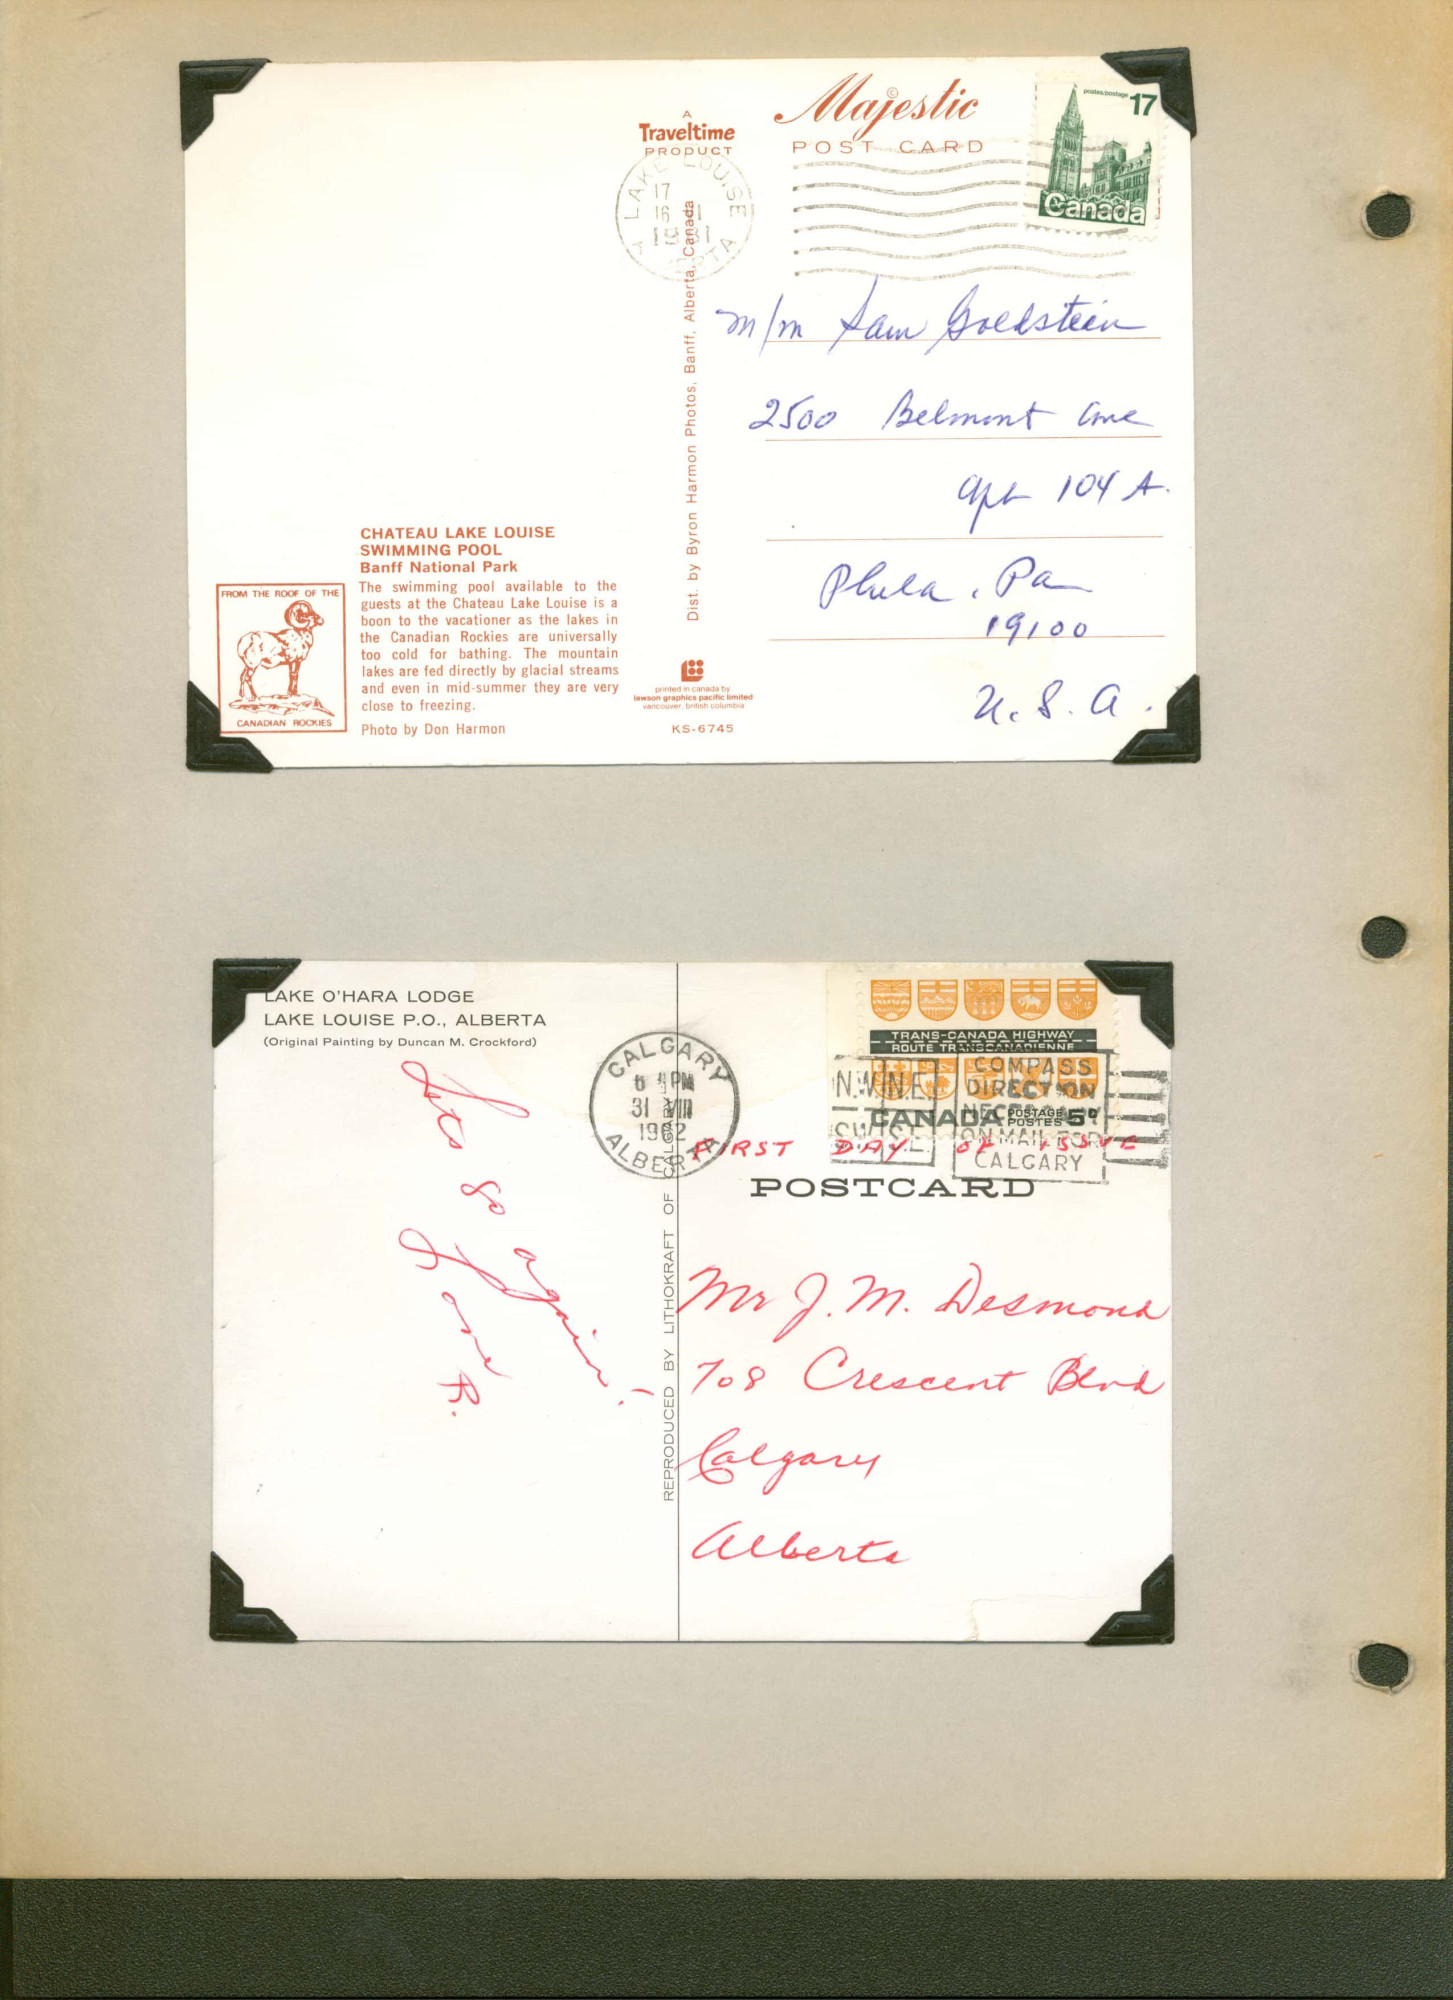 A
Traveltime
PRODUCT
Majestic
©
POST CARD
postes/postage 17
Canada
LAKE LOUISE
17
16
ALTA
m/m Sam Goldstein
2500 Belmont Ave
Apt 104 A.
Phila. Pa
19100
U.S.A.
Dist. by Byron Harmon Photos, Banff, Alberta, Canada
CHATEAU LAKE LOUISE
SWIMMING POOL
Banff National Park
The swimming pool available to the
guests at the Chateau Lake Louise is a
boon to the vacationer as the lakes in
the Canadian Rockies are universally
too cold for bathing. The mountain
lakes are fed directly by glacial streams
and even in mid-summer they are very
close to freezing.
Photo by Don Harmon
FROM THE ROOF OF THE
CANADIAN ROCKIES
printed in canada by
lawson graphics pacific limited
vancouver, british columbia
KS-6745
LAKE O'HARA LODGE
LAKE LOUISE P.O., ALBERTA
(Original Painting by Duncan M. Crockford)
CALGARY
6 PM
31 VIII
1962
ALBERTA
TRANS-CANADA HIGHWAY
ROUTE TRANSCANADIENNE
CANADA POSTAGE POSTES 5¢
N.W. N.E.
S.W. S.E.
COMPASS
DIRECTION
NECESSARY
ON MAIL FOR
CALGARY
FIRST DAY OF ISSUE
POSTCARD
Lets go again!
Love
R.
REPRODUCED BY LITHOKRAFT OF CALGARY
Mr J. M. Desmond
708 Crescent Blvd
Calgary
Alberta